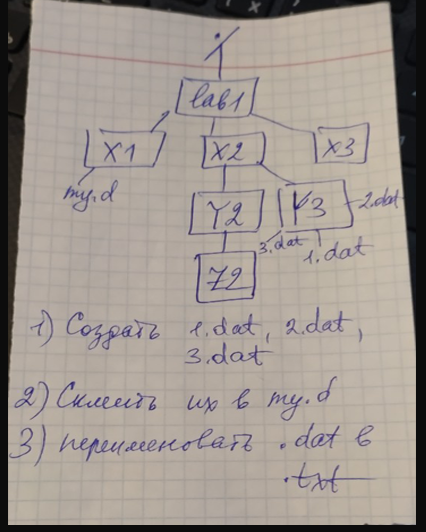 /
lab1
X1 X2 X3
my.d
Y2 Y3 2.dat
3.dat 1.dat
Z2
1) Создать 1.dat, 2.dat,
3.dat
2) Склеить их в my.d
3) переименовать .dat в
.txt